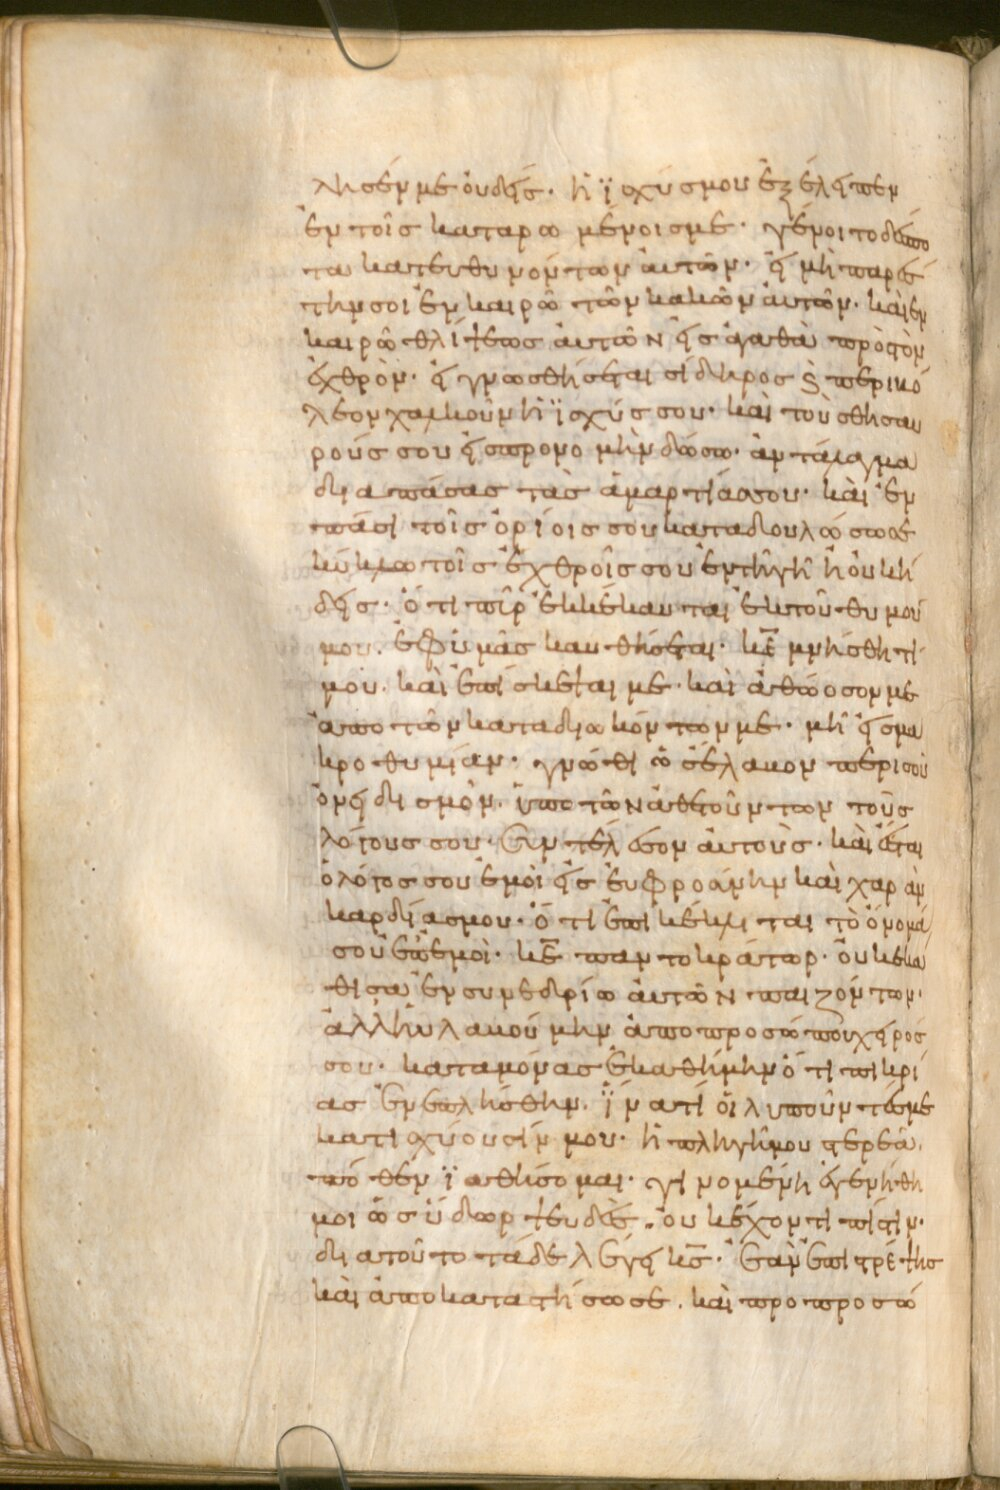 λησέν με ουδείς· ἡ ϊσχύσμου ἐξέλειπεν
ἐν τοῖς καταρω μένοισμε· γένοιτο δέσπο
τα κατευθυνόντων ἀυτῶν· εἰ μὴ παρέ
στην σοι ἐν καιρῶ τῶν κακῶν ἀυτῶν· καὶ ἐν
καιρῶ θλίψεως ἀυτῶν εἰς ἀγαθὰ πρὸς τὸν
ἐχθρόν· εἰ γνωσθήσεται σίδηρος ϗ περιβό
λεον χαλκοῦν ἡ ϊσχύς σου· καὶ τοὺσ θησαυ
ρούς σου εἰσ προνομὴν δώσω· ἀντάλαγμα
διαπάσας τὰς ἁμαρτίασσου· καὶ ἐν
πᾶσι τοῖς ὁρίοις σου καταδουλώσωσέ
κύκλω τοῖς ἐχθροῖς σου ἐν τῆ γῆ ἧ οὐκ ή
δεις· ὅτι πῦρ ἐκκέκαυται ἐκ τοῦ θυμού
μου. ἐφ ὑμᾶς καυθήσεται· κε̄ μνήσθητί
μου. καὶ ἐπίσκεψαι με· καὶ ἀθώοσον με
ἀπο τῶν καταδιωκόντων με· μὴ εἰς μα
κροθυμίαν· γνῶθι ὡσ έλαβον περισοῦ
ὀνειδισμόν. ὑπο τῶν ἀθετοῦντων τοῦς
λόγους σου· συντέλεσον ἀυτοὺς· καὶ ἔσται
ὁ λόγος σου ἐμοὶ εἰς ἐυφροσύνην καὶ χαρὰν
καρδίασμου· ὅτι ἐπικέκληται τὸ ὄνομά
σου ἐπ ἐμοὶ· κε̄ παντοκράτωρ· ὀυκ εκα
θισα ἐν συνεδρίω ἀυτῶν παιζόντων·
ἀλλ ηυλαβούμην ἀπο προσώπου χειρός
σου· καταμόνας ἐκαθήμην ὅτι πικρί
ας ἐνεπλήσθην. ϊνατί ὁι λυπούντέσμε
κατισχύουσίν μου· ἡ πληγῆμου στερεὰ.
πόθεν ϊαθήσομαι· γινομένη ἐγενήθη
μοι ὡς ὕδωρ ψευδὲς. ὀυκ έχον τι πίστιν·
διατοῦτο τάδε λέγει κς̄· ἐὰν ἐπιτρέψης
καὶ ἀποκαταστήσωσε. καὶ προπροσώ